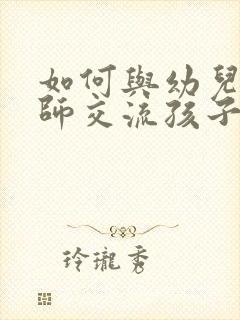 如何與幼兒
師交流孩子
玲瓏秀